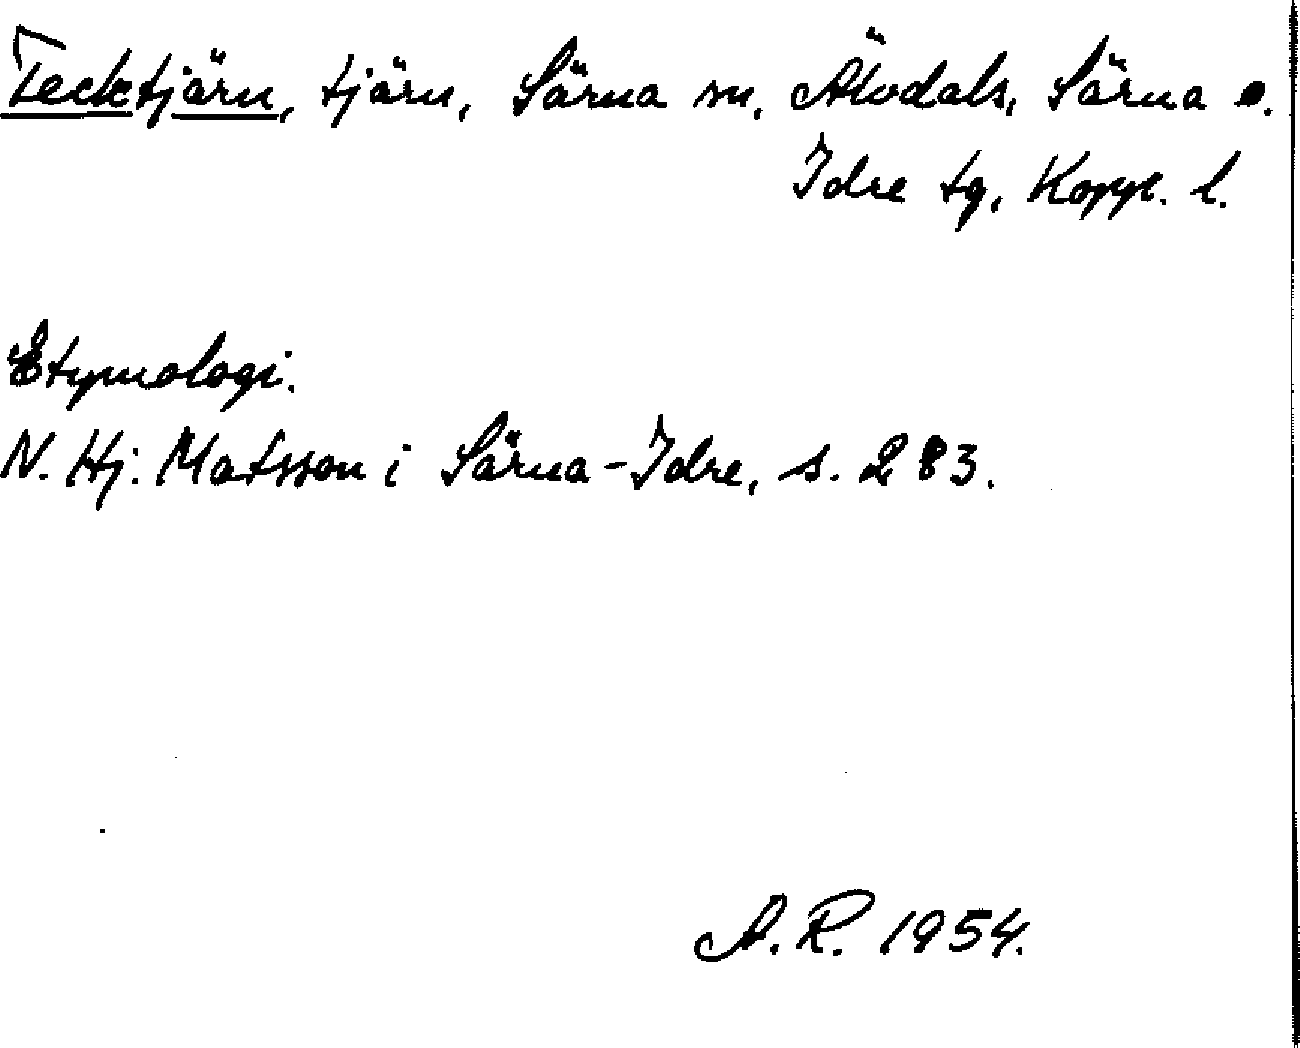 Tecktjärn, tjärn, Särna sn, Älvdals, Särna o.
Idre tg, Kopp. l.
Etymologi.
N. Hj. Matsson i Särna-Idre, s. 283.
A. R. 1954.